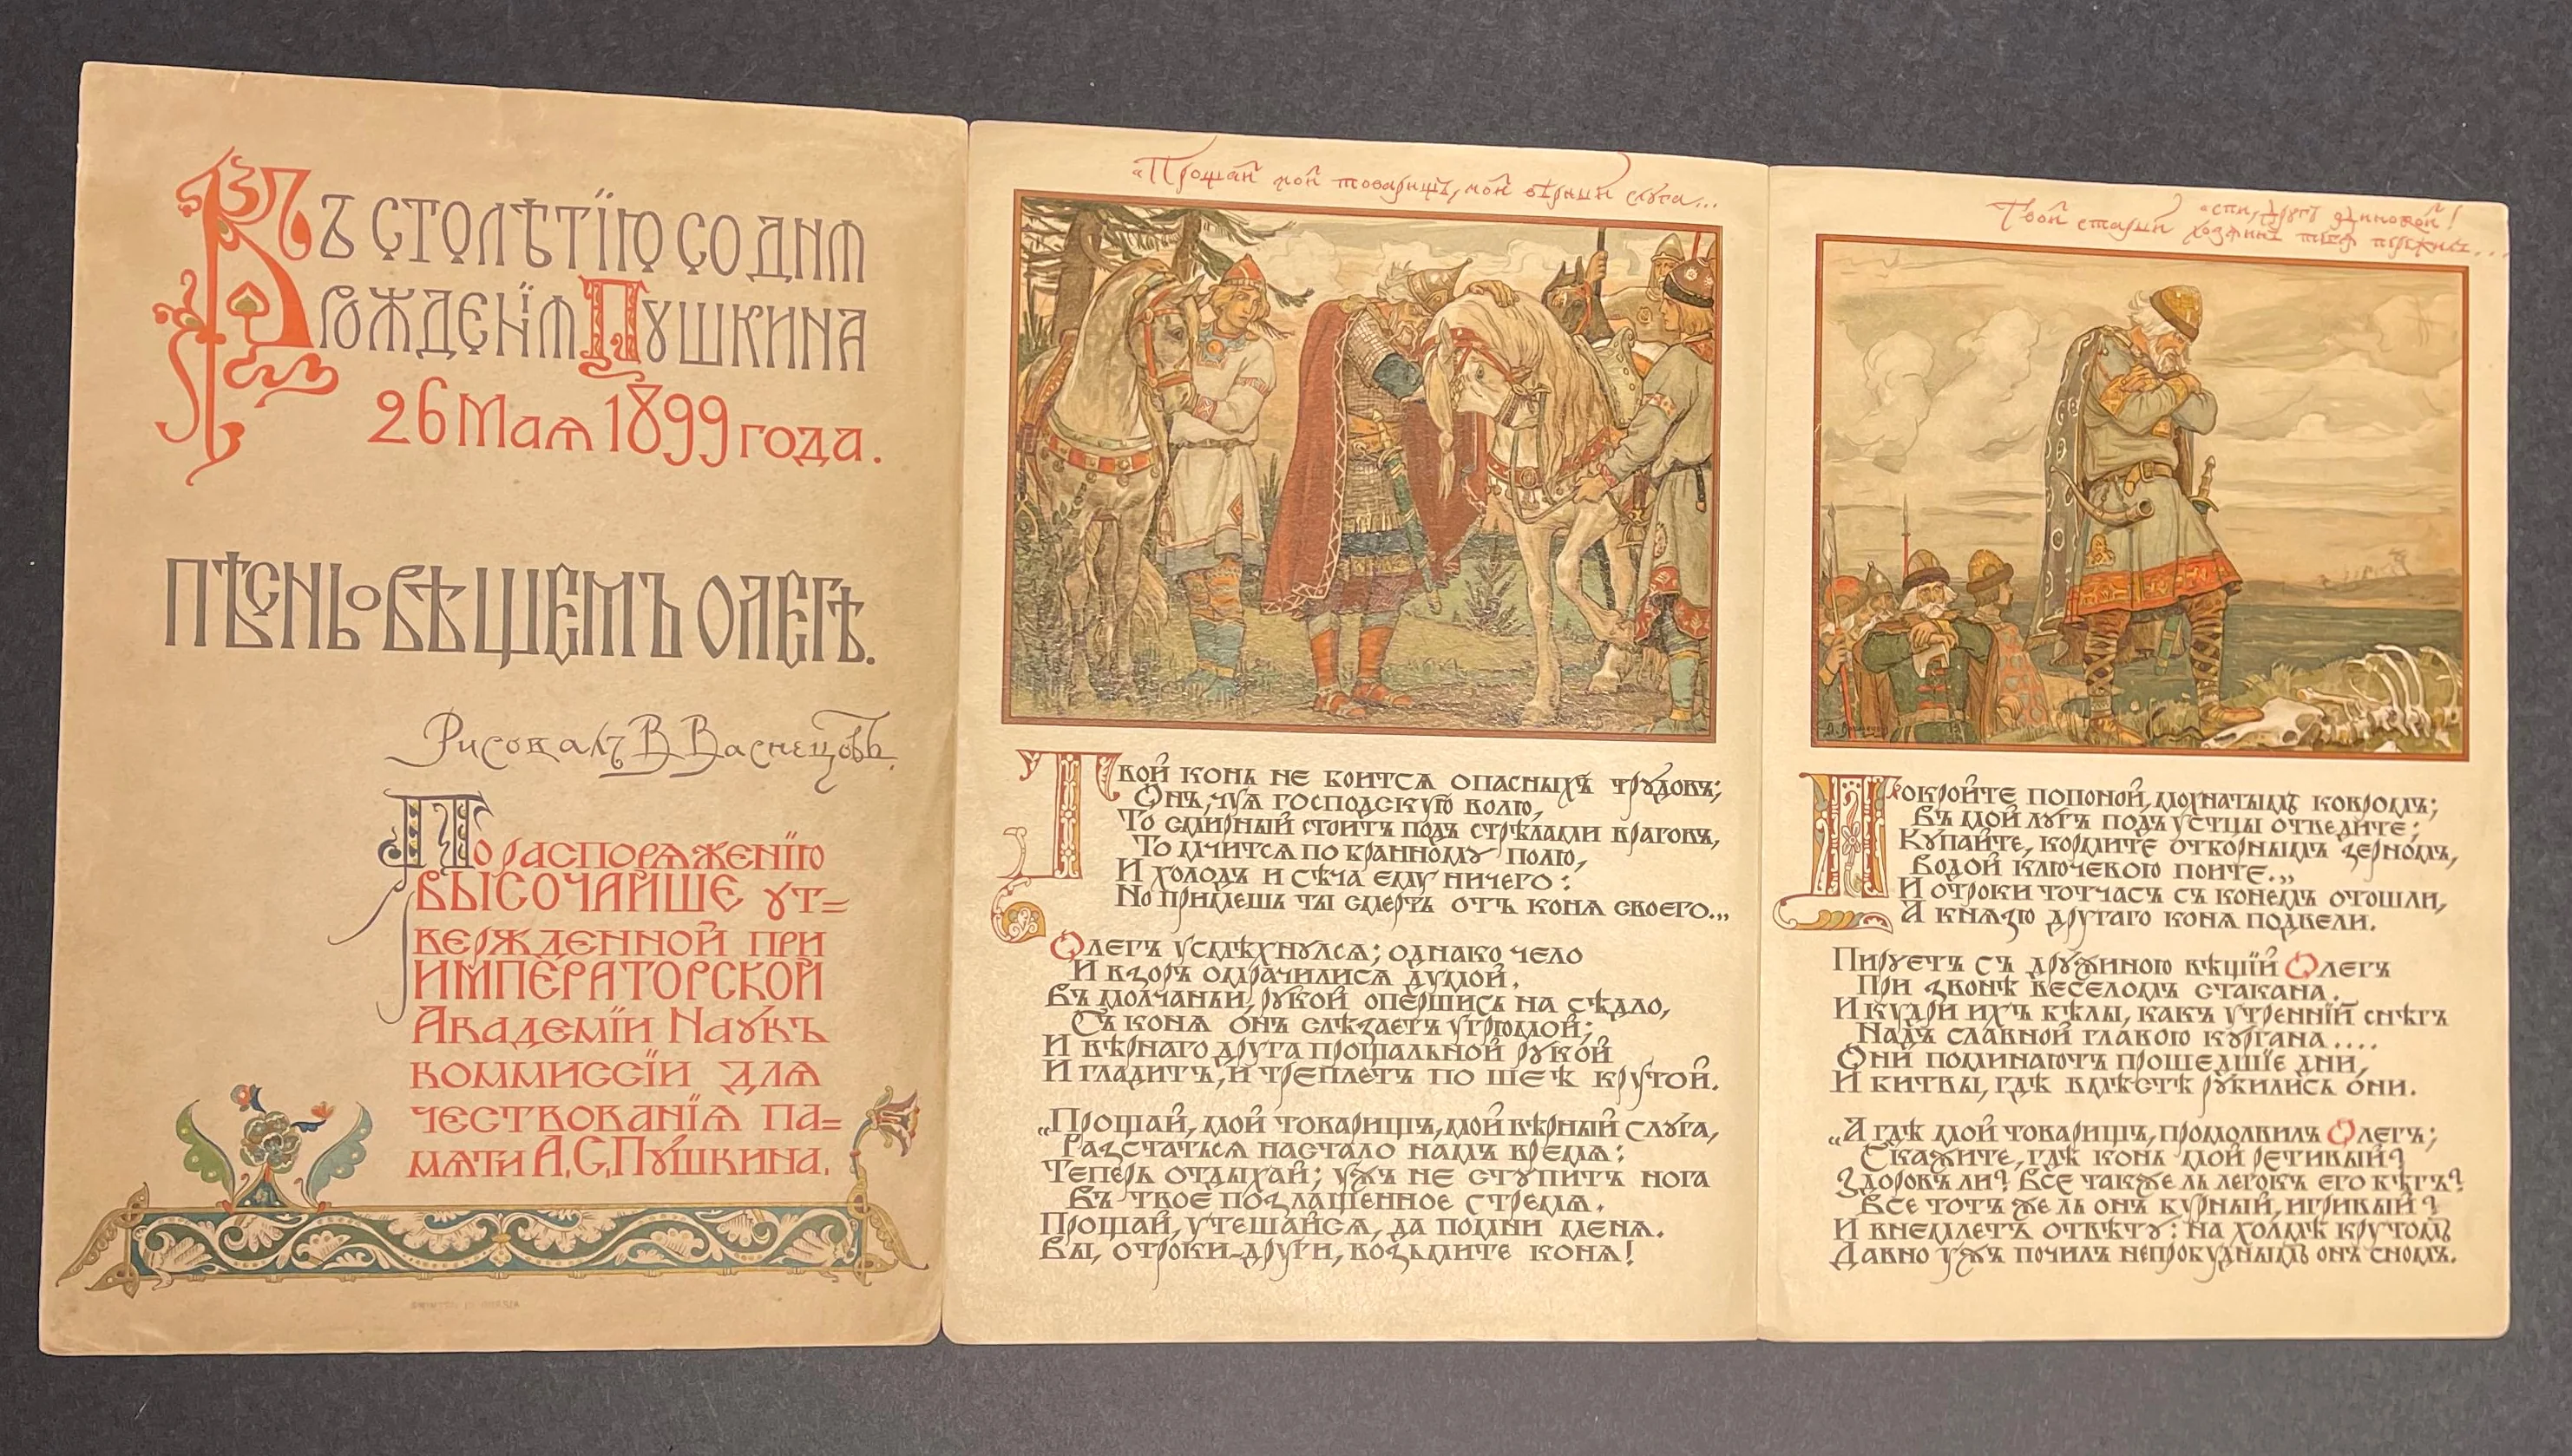 Къ столѣтїю со дня
рожденїя Пушкина
26 Мая 1899 года.
Пѣснь о Вѣщемъ Олегѣ.
Рисовалъ В Васнецовъ.
По распоряженїю
ВЫСОЧАЙШЕ ут=
вержденной при
ИМПЕРАТОРСКОЙ
Академїи Наукъ
коммиссїи для
чествованїя па=
мяти А.С.Пушкина.
«Прощай мой товарищъ, мой вѣрный слуга...
Твой конь не боится опасныхъ трудовъ;
Онъ, чуя господскую волю,
То смирный стоитъ подъ стрѣлами враговъ,
То мчится по бранному полю,
И холодъ и сѣча ему ничего:
Но примешь ты смерть отъ коня своего...
Олегъ усмѣхнулся; однако чело
И взоръ омрачилися думой.
Въ молчаньи, рукой опершись на сѣдло,
Съ коня онъ слѣзаетъ угрюмой;
И вѣрнаго друга прощальной рукой
И гладитъ, и треплетъ по шеѣ крутой.
„Прощай, мой товарищъ, мой вѣрный слуга,
Разстаться настало намъ время:
Теперь отдыхай; ужъ не ступитъ нога
Въ твое позлащенное стремя.
Прощай, утешайся, да помни меня.
Вы, отроки-други, возьмите коня!
«спи, другъ одинокой!
Твой старый хозяинъ тебя пережилъ...
Покройте попоной, мохнатымъ ковромъ;
Въ мой лугъ подъ устцы отведите;
Купайте, кормите отборнымъ зерномъ,
Водой ключевою поите.„
И отроки тотчасъ съ конемъ отошли,
А князю другаго коня подвели.
Пируетъ съ дружиною вѣщїй Олегъ
При звонѣ веселомъ стакана.
И кудри ихъ бѣлы, какъ утреннїй снѣгъ
Надъ славной главою кургана....
Они поминаютъ прошедшїе дни,
И битвы, гдѣ вмѣстѣ рубились они.
„А гдѣ мой товарищъ, промолвилъ Олегъ;
Скажите, гдѣ конь мой ретивый?
Здоровъ ли? Все также ль легокъ его бѣгъ?
Все тотъ же ль онъ бурный, игривый?
И внемлетъ отвѣту: на холмѣ крутомъ
Давно ужъ почилъ непробуднымъ онъ сномъ.